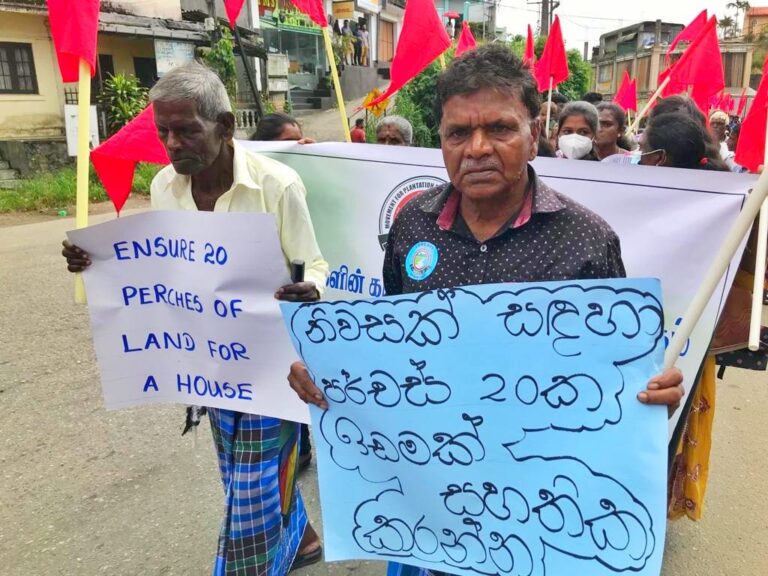 ENSURE 20
PERCHES OF
LAND FOR
A HOUSE
නිවසක් සඳහා
පර්චස් 20ක
ඉඩමක්
සහතික
කරන්න
MOVEMENT FOR PLANTATION
ளின் கா